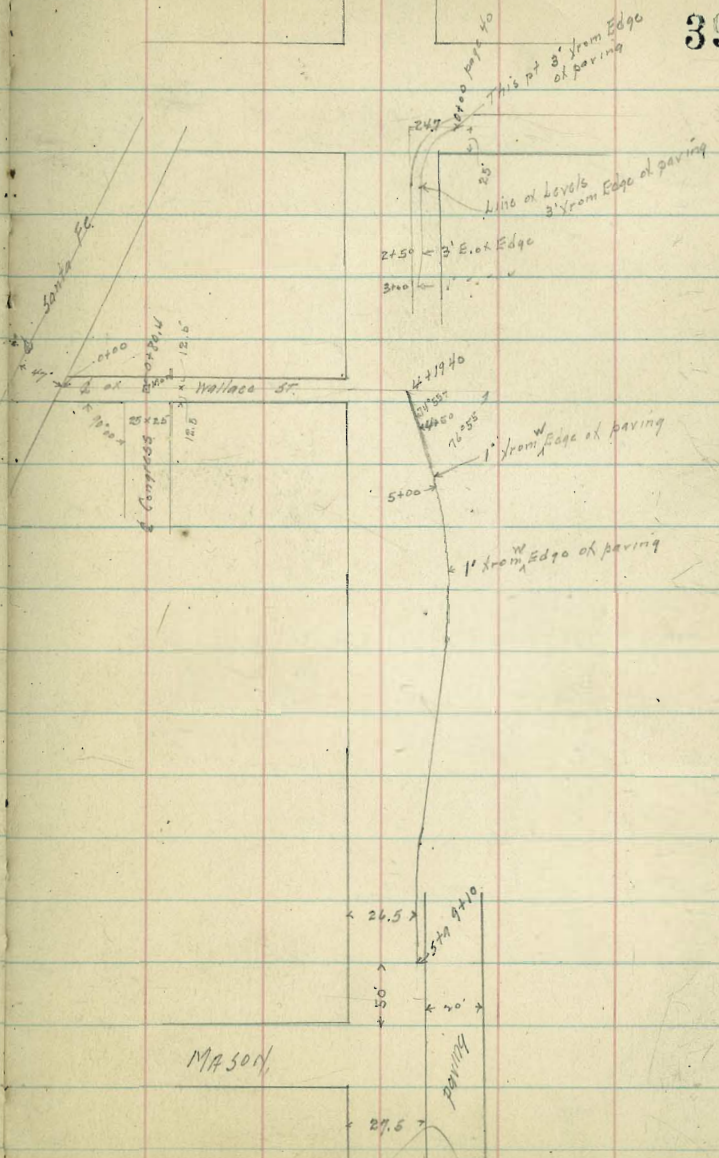 39
0+00 page 40
This pt 3' from Edge
of paving
24.7
25'
Line of Levels
3' from Edge of paving
2+50
3' E. of Edge
3+00
1' " " "
Santa Fe.
47.
0+00
0+80.4
12.5
12.5
℄ of Wallace ST.
90°00'
25 x 25
℄ Congress
4+19.40
4+50
76°55
1' from W Edge of paving
5+00
1' from W Edge of paving
26.5
Sta 9+10
50'
20'
MASON
paving
27.5